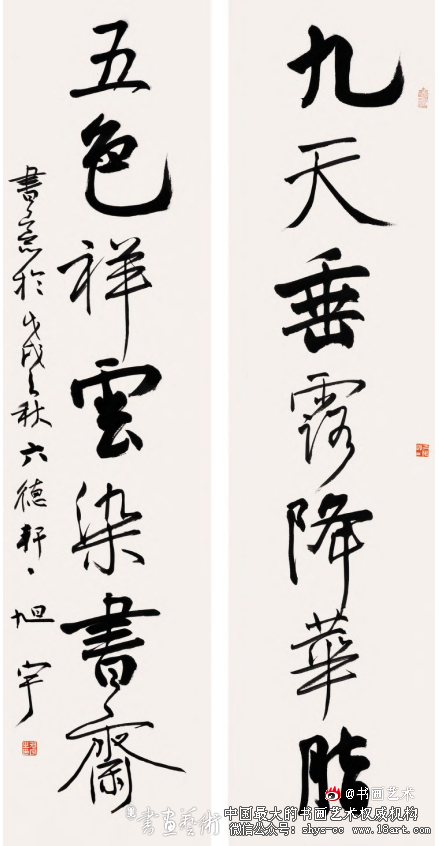 九天垂露降華脂
五色祥雲染書齋
書意於戊戌之秋六德軒旭宇
@书画艺术
書畫藝術
中国最大的书画艺术权威机构
微信公众号: shys-cc www.18art.com